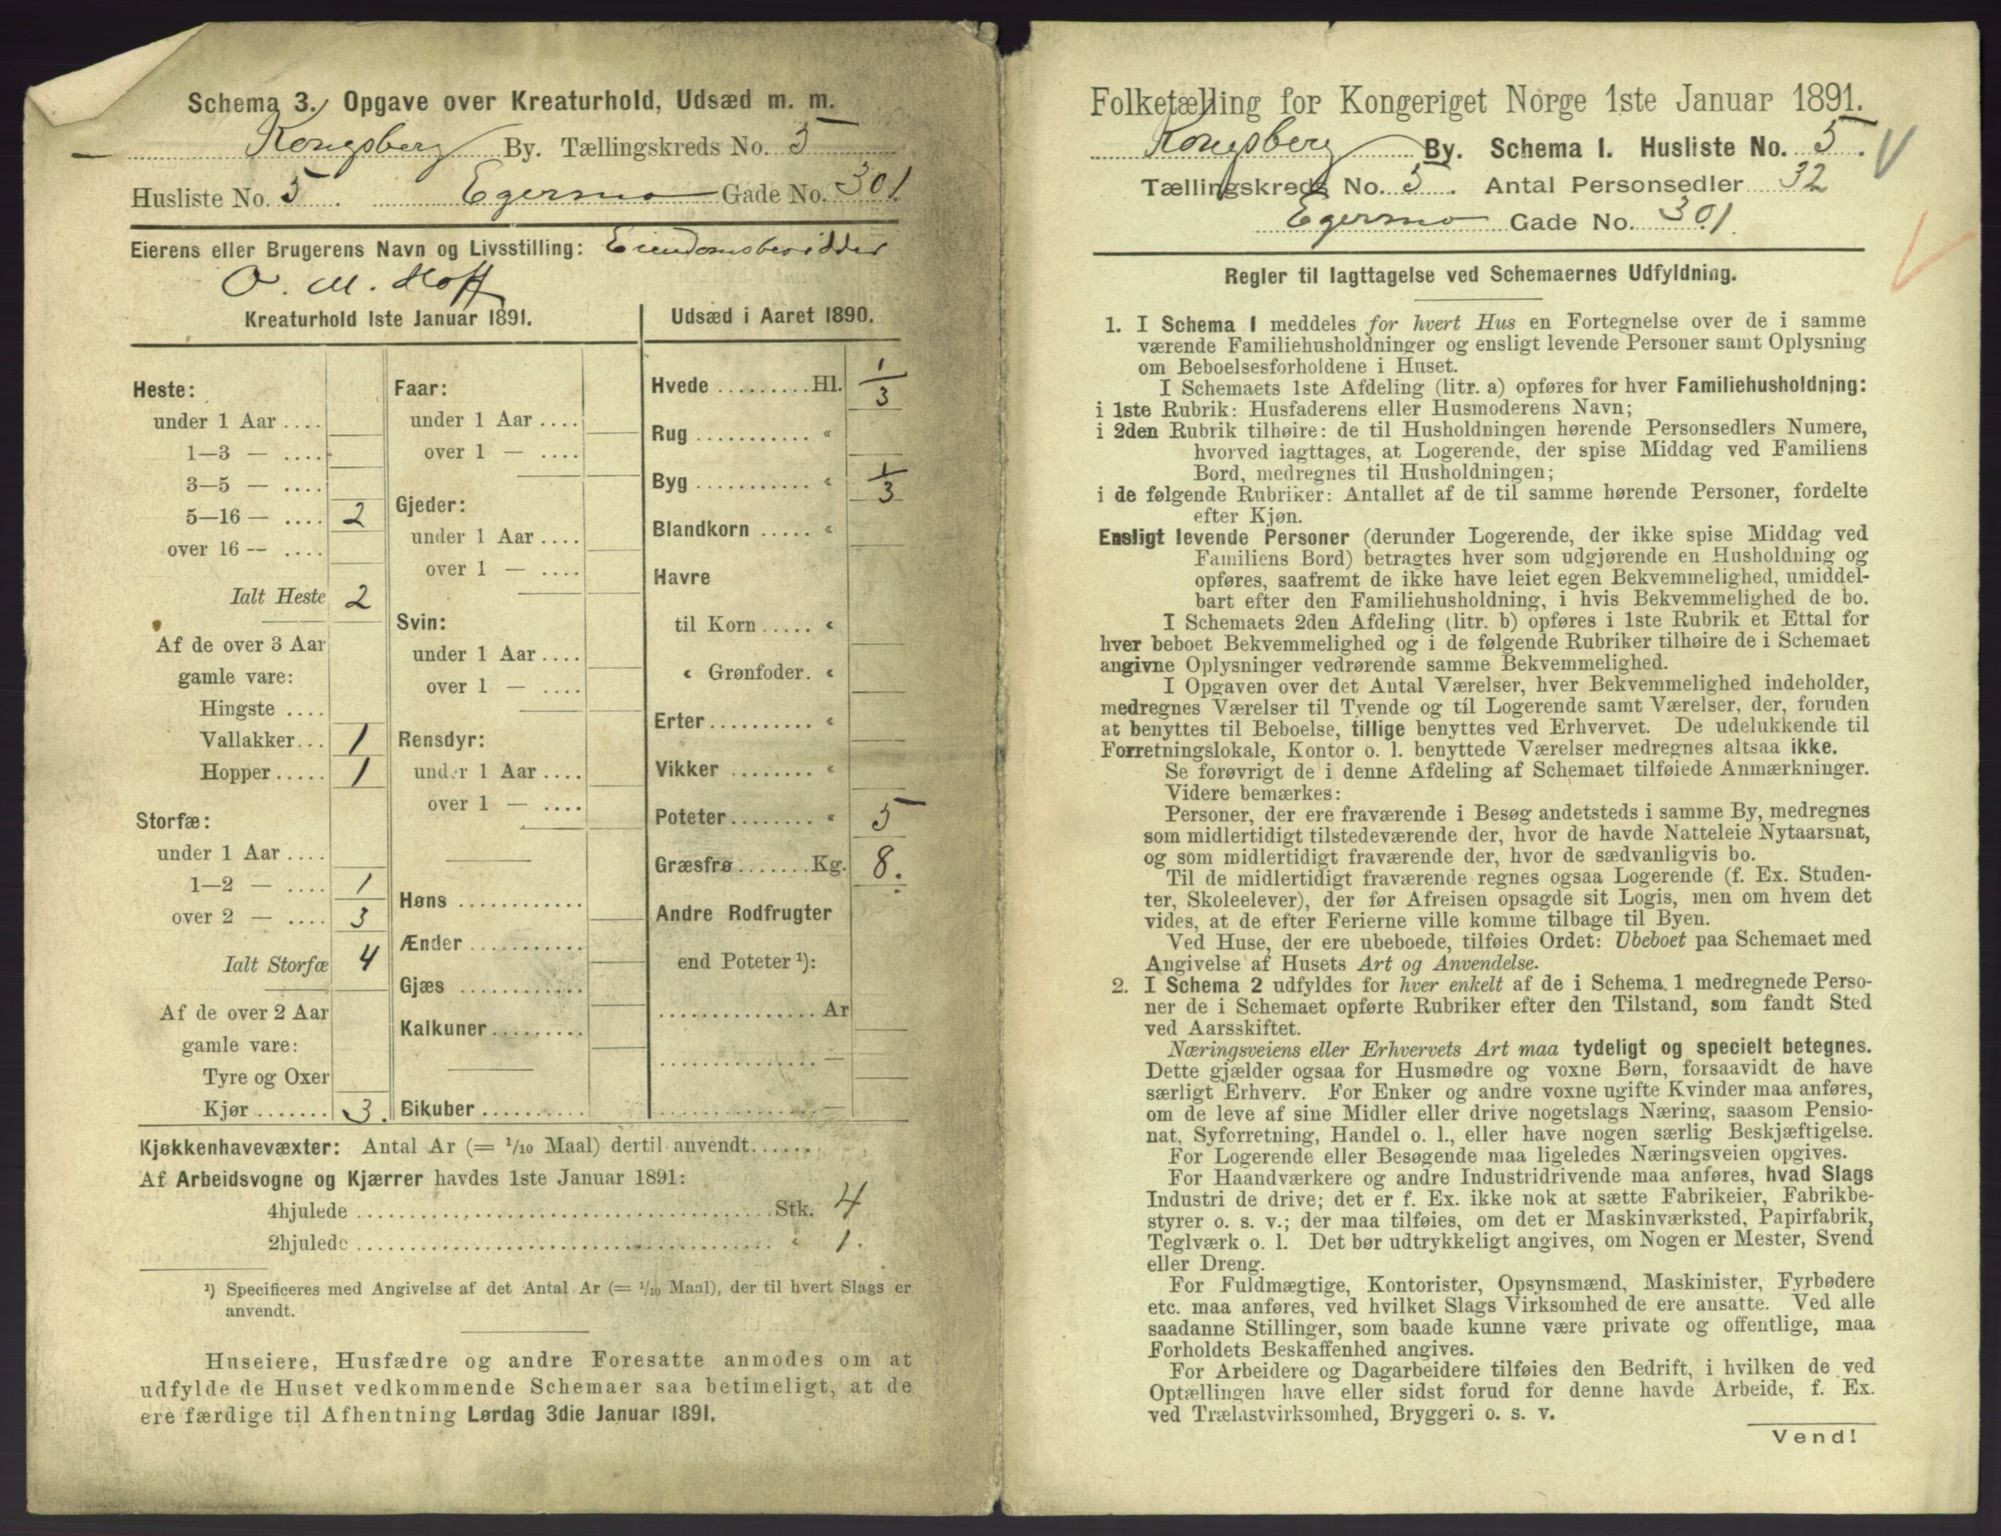 Schema 3. Opgave over Kreaturhold, Udsæd m. m.
Kongsberg By. Tællingskreds No. 5
Husliste No. 5. Egermo Gade No. 301.
Eierens eller Brugerens Navn og Livsstilling: Eiendomsbesidder
O. M. Hoff
Kreaturhold 1ste Januar 1891.
Heste:
under 1 Aar ....
1—3 — ....
3—5 — ....
5—16 — .... 2
over 16 — ....
Ialt Heste 2
Af de over 3 Aar
gamle vare:
Hingste ....
Vallakker... 1
Hopper..... 1
Storfæ:
under 1 Aar ....
1—2 — .... 1
over 2 — .... 3
Ialt Storfæ 4
Af de over 2 Aar
gamle vare:
Tyre og Oxer
Kjør....... 3.
Faar:
under 1 Aar ....
over 1 — ....
Gjeder:
under 1 Aar ....
over 1 — ....
Svin:
under 1 Aar ....
over 1 — ....
Rensdyr:
under 1 Aar ....
over 1 — ....
Høns ............
Ænder ...........
Gjæs ............
Kalkuner.........
Bikuber ..........
Udsæd i Aaret 1890.
Hvede .........Hl. 1/3
Rug ........... «
Byg ........... « 1/3
Blandkorn ..... «
Havre
til Korn ..... «
« Grønfoder. «
Erter .......... «
Vikker ........ «
Poteter........ « 5
Græsfrø .......Kg. 8.
Andre Rodfrugter
end Poteter ¹):
...............Ar
............... —
............... —
Kjøkkenhavevæxter: Antal Ar (= 1/10 Maal) dertil anvendt......
Af Arbeidsvogne og Kjærrer havdes 1ste Januar 1891:
4hjulede ........................................Stk. 4
2hjulede ........................................ « 1.
¹) Specificeres med Angivelse af det Antal Ar (= 1/10 Maal), der til hvert Slags er
anvendt.
Huseiere, Husfædre og andre Foresatte anmodes om at
udfylde de Huset vedkommende Schemaer saa betimeligt, at de
ere færdige til Afhentning Lørdag 3die Januar 1891.
Folketælling for Kongeriget Norge 1ste Januar 1891.
Kongsberg By. Schema I. Husliste No. 5.
Tællingskreds No. 5. Antal Personsedler 32
Egermo Gade No. 301.
Regler til Iagttagelse ved Schemaernes Udfyldning.
1. I Schema 1 meddeles for hvert Hus en Fortegnelse over de i samme
værende Familiehusholdninger og ensligt levende Personer samt Oplysning
om Beboelsesforholdene i Huset.
I Schemaets 1ste Afdeling (litr. a) opføres for hver Familiehusholdning:
i 1ste Rubrik: Husfaderens eller Husmoderens Navn;
i 2den Rubrik tilhøire: de til Husholdningen hørende Personsedlers Numere,
hvorved iagttages, at Logerende, der spise Middag ved Familiens
Bord, medregnes til Husholdningen;
i de følgende Rubriker: Antallet af de til samme hørende Personer, fordelte
efter Kjøn.
Ensligt levende Personer (derunder Logerende, der ikke spise Middag ved
Familiens Bord) betragtes hver som udgjørende en Husholdning og
opføres, saafremt de ikke have leiet egen Bekvemmelighed, umiddel-
bart efter den Familiehusholdning, i hvis Bekvemmelighed de bo.
I Schemaets 2den Afdeling (litr. b) opføres i 1ste Rubrik et Ettal for
hver beboet Bekvemmelighed og i de følgende Rubriker tilhøire de i Schemaet
angivne Oplysninger vedrørende samme Bekvemmelighed.
I Opgaven over det Antal Værelser, hver Bekvemmelighed indeholder,
medregnes Værelser til Tyende og til Logerende samt Værelser, der, foruden
at benyttes til Beboelse, tillige benyttes ved Erhvervet. De udelukkende til
Forretningslokale, Kontor o. l. benyttede Værelser medregnes altsaa ikke.
Se forøvrigt de i denne Afdeling af Schemaet tilføiede Anmærkninger.
Videre bemærkes:
Personer, der ere fraværende i Besøg andetsteds i samme By, medregnes
som midlertidigt tilstedeværende der, hvor de havde Natteleie Nytaarsnat,
og som midlertidigt fraværende der, hvor de sædvanligvis bo.
Til de midlertidigt fraværende regnes ogsaa Logerende (f. Ex. Studen-
ter, Skoleelever), der før Afreisen opsagde sit Logis, men om hvem det
vides, at de efter Ferierne ville komme tilbage til Byen.
Ved Huse, der ere ubeboede, tilføies Ordet: Ubeboet paa Schemaet med
Angivelse af Husets Art og Anvendelse.
2. I Schema 2 udfyldes for hver enkelt af de i Schema 1 medregnede Perso-
ner de i Schemaet opførte Rubriker efter den Tilstand, som fandt Sted
ved Aarsskiftet.
Næringsveiens eller Erhvervets Art maa tydeligt og specielt betegnes.
Dette gjælder ogsaa for Husmødre og voxne Børn, forsaavidt de have
særligt Erhverv. For Enker og andre voxne ugifte Kvinder maa anføres,
om de leve af sine Midler eller drive nogetslags Næring, saasom Pensio-
nat, Syforretning, Handel o. l., eller have nogen særlig Beskjæftigelse.
For Logerende eller Besøgende maa ligeledes Næringsveien opgives.
For Haandværkere og andre Industridrivende maa anføres, hvad Slags
Industri de drive; det er f. Ex. ikke nok at sætte Fabrikeier, Fabrikbe-
styrer o. s. v.; der maa tilføies, om det er Maskinværksted, Papirfabrik,
Teglværk o. l. Det bør udtrykkeligt angives, om Nogen er Mester, Svend
eller Dreng.
For Fuldmægtige, Kontorister, Opsynsmænd, Maskinister, Fyrbødere
etc. maa anføres, ved hvilket Slags Virksomhed de ere ansatte. Ved alle
saadanne Stillinger, som baade kunne være private og offentlige, maa
Forholdets Beskaffenhed angives.
For Arbeidere og Dagarbeidere tilføies den Bedrift, i hvilken de ved
Optællingen have eller sidst forud for denne havde Arbeide, f. Ex.
ved Trælastvirksomhed, Bryggeri o. s. v.
Vend!